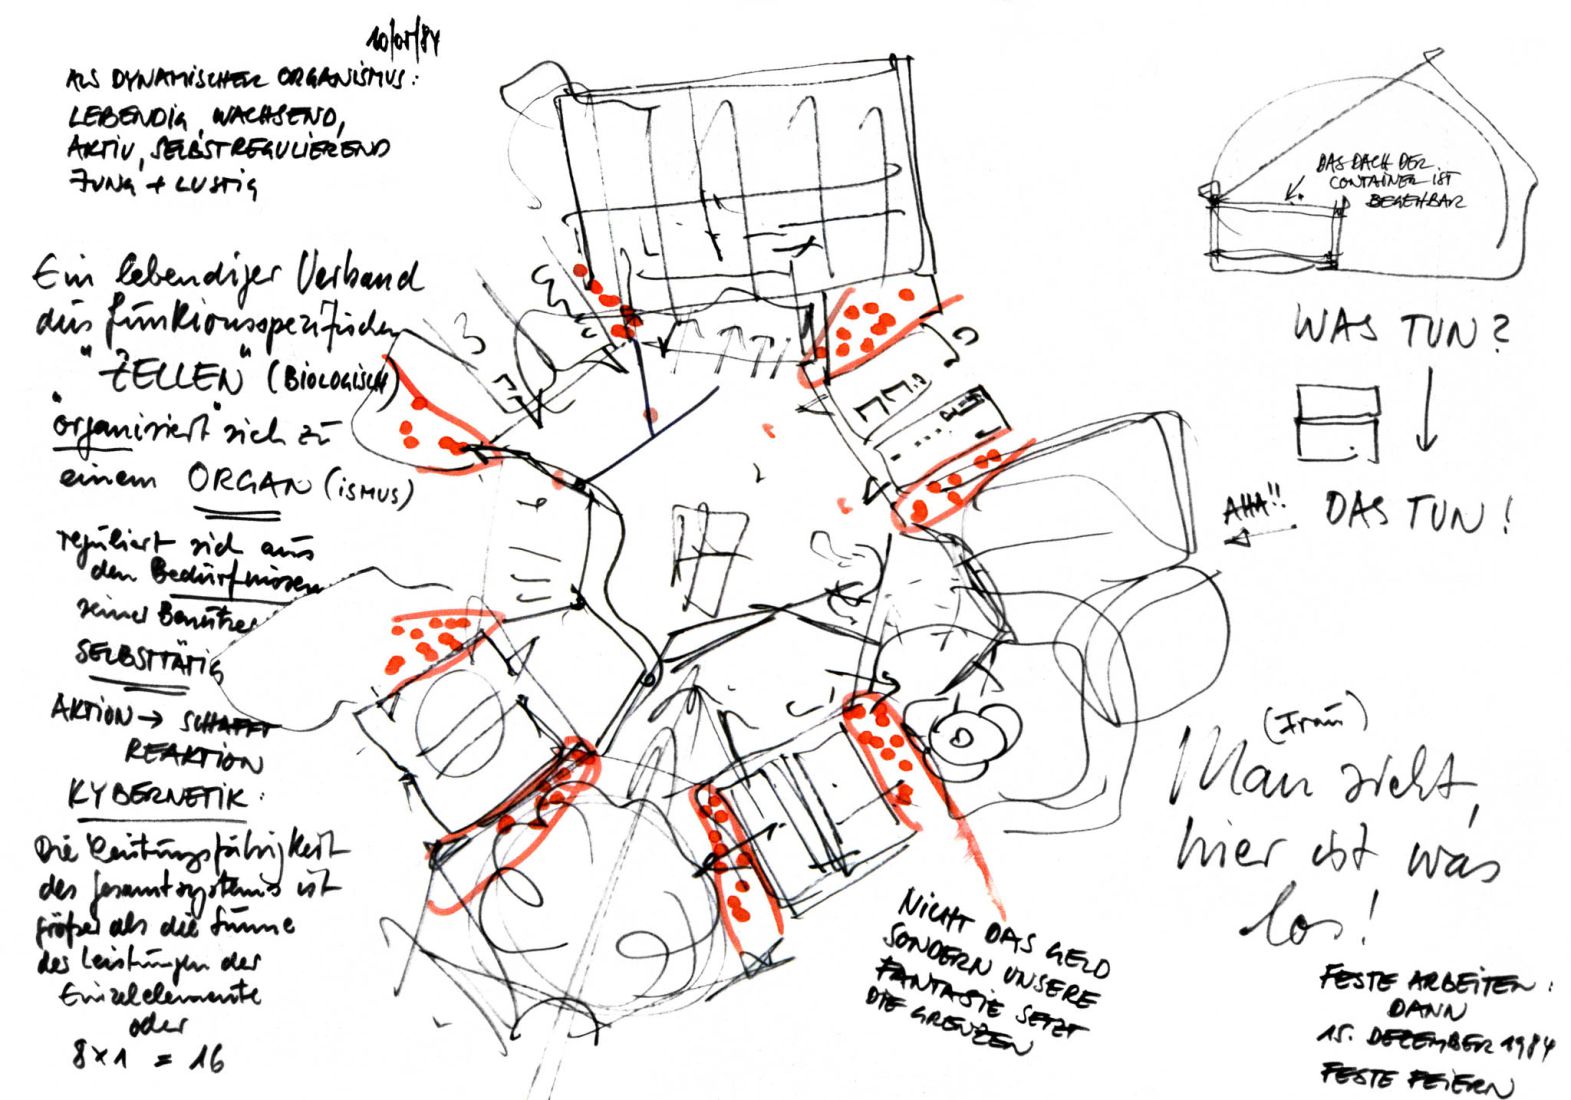 10/05/84
ALS DYNAMISCHER ORGANISMUS:
LEBENDIG, WACHSEND,
AKTIV, SELBSTREGULIEREND
JUNG + LUSTIG
Ein lebendiger Verband
aus funktionsspezifischen
"ZELLEN" (BIOLOGISCH)
"organisiert" sich zu
einem ORGAN (ISMUS)
reguliert sich aus
den Bedürfnissen
seiner Benutzer
SELBSTTÄTIG
AKTION → SCHAFFT
REAKTION
KYBERNETIK:
Die Leistungsfähigkeit
des Gesamtsystems ist
größer als die Summe
der Leistungen der
Einzelelemente
oder
8 x 1 = 16
DAS DACH DER
CONTAINER IST
BEGEHBAR
WAS TUN?
AHA!! DAS TUN!
(Frau)
Man sieht,
hier ist was
los!
NICHT DAS GELD
SONDERN UNSERE
FANTASIE SETZT
DIE GRENZEN
FESTE ARBEITEN:
DANN
15. DEZEMBER 1984
FESTE FEIERN